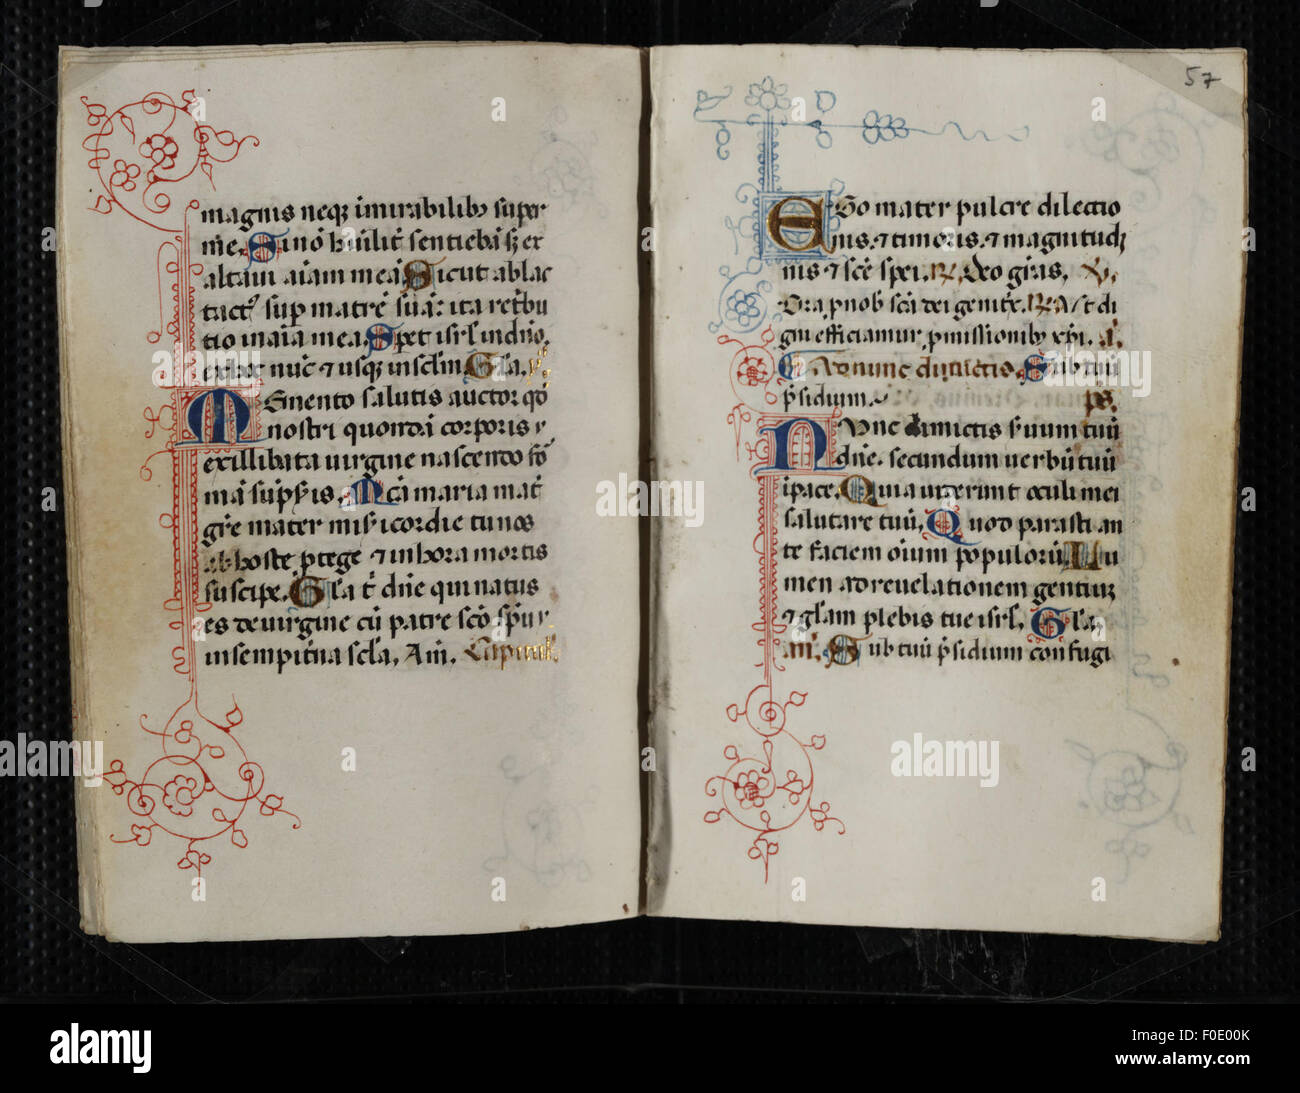 magnis neq; i mirabilib; super
me. Si nō hūilit̄ sentiebā sȝ ex
altaui aīam meā Sicut ablac
tact⁹ sup matrē suā: ita retˀbu
tio in aīa mea. Spet isrl in dn̄o.
ex hoc nūc ⁊ usq; in sclm̄ Gl̄a. ys.
Memento salutis auctor qd̄
nostri quondā corporis ex
ex illibata uirgine nascendo for
mā sūpsˀis. Mc̄ā maria mat̄
grē mater misˀicordie tu nos
ab hoste ꝓtege ⁊ in hora mortis
suscipe. Gl̄a t̄ dn̄e qui natus
es de uirgine cū patre scō sp̄u
in sempitˀna scl̄a. Am̄. Capitul'.
57
Ego mater pulcre dilectio
nis. ⁊ timoris. ⁊ magnitudi
nis ⁊ scē spei. ℟. Deo grās. ℣.
Ora ꝓ nob̄ scā dei genitˀx. ℟ Vt di
gni efficiamur ꝓmissionib; xp̄i. a.
Ad nunc dimictis. Sub tuū
p̄sidium. ps.
Nunc dimictis sˀuum tuū
dn̄e. secundum uerbū tuū
ī pace. Quia uiderunt oculi mei
salutare tuū. Quod parasti an
te faciem oīum populorū. Lu
men ad reuelationem gentiuȝ
⁊ glām plebis tue isrl. Gl̄a.
an̄. Sub tuū p̄sidium confugi
alamy
www.alamy.com
Image ID: F0E00K